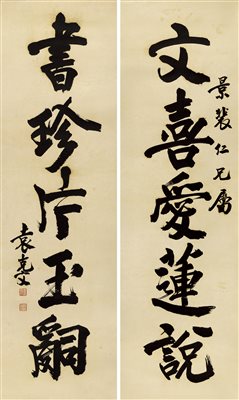 景裴仁兄屬
文喜愛蓮說
書珍片玉嗣
袁克文